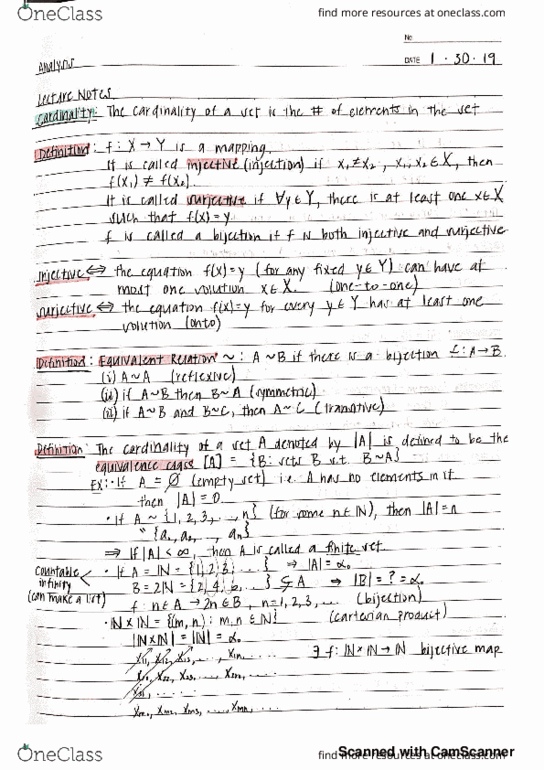 OneClass
find more resources at oneclass.com
No
Analysis
DATE 1 · 30 · 19
Lecture Notes
Cardinality: The cardinality of a set is the # of elements in the set
Definition: f: X → Y is a mapping.
It is called injective (injection) if x₁ ≠ x₂, x₁, x₂ ∈ X, then
f(x₁) ≠ f(x₂).
It is called surjective if ∀y ∈ Y, there is at least one x ∈ X
such that f(x) = y
f is called a bijection if f is both injective and surjective
injective ⟺ the equation f(x) = y (for any fixed y ∈ Y) can have at
most one solution x ∈ X. (one-to-one)
surjective ⟺ the equation f(x) = y for every y ∈ Y has at least one
solution (onto)
Definition: Equivalent Relation ~ : A ~ B if there is a bijection f: A → B
(i) A ~ A (reflexive)
(ii) if A ~ B then B ~ A (symmetric)
(iii) if A ~ B and B ~ C, then A ~ C (transitive)
Definition: The cardinality of a set A denoted by |A| is defined to be the
equivalence [A] = {B: sets B s.t. B ~ A}
Ex: · If A = ∅ (empty set) i.e. A has no elements in it
then |A| = 0
· If A ~ {1, 2, 3, ..., n} (for some n ∈ ℕ), then |A| = n
" {a₁, a₂, ..., aₙ}
⇒ If |A| < ∞, then A is called a finite set
countable infinity (can make a list) < · If A = ℕ = {1, 2, 3, ...} ⇒ |A| = α₀
B = 2ℕ = {2, 4, 6, ...} ⊊ A ⇒ |B| = ? = α₀
f: n ∈ A → 2n ∈ B, n = 1, 2, 3, ... (bijection)
· ℕ × ℕ = {(m, n) : m, n ∈ ℕ} (cartesian product)
|ℕ × ℕ| = |ℕ| = α₀
x₁₁, x₁₂, x₁₃, ..., x₁ₙ, ... ∃ f: ℕ × ℕ → ℕ bijective map
x₂₁, x₂₂, x₂₃, ..., x₂ₙ, ...
x₃₁, ...
xₘ₁, xₘ₂, xₘ₃, ..., xₘₙ, ...
OneClass
find more resources at oneclass.com
Scanned with CamScanner